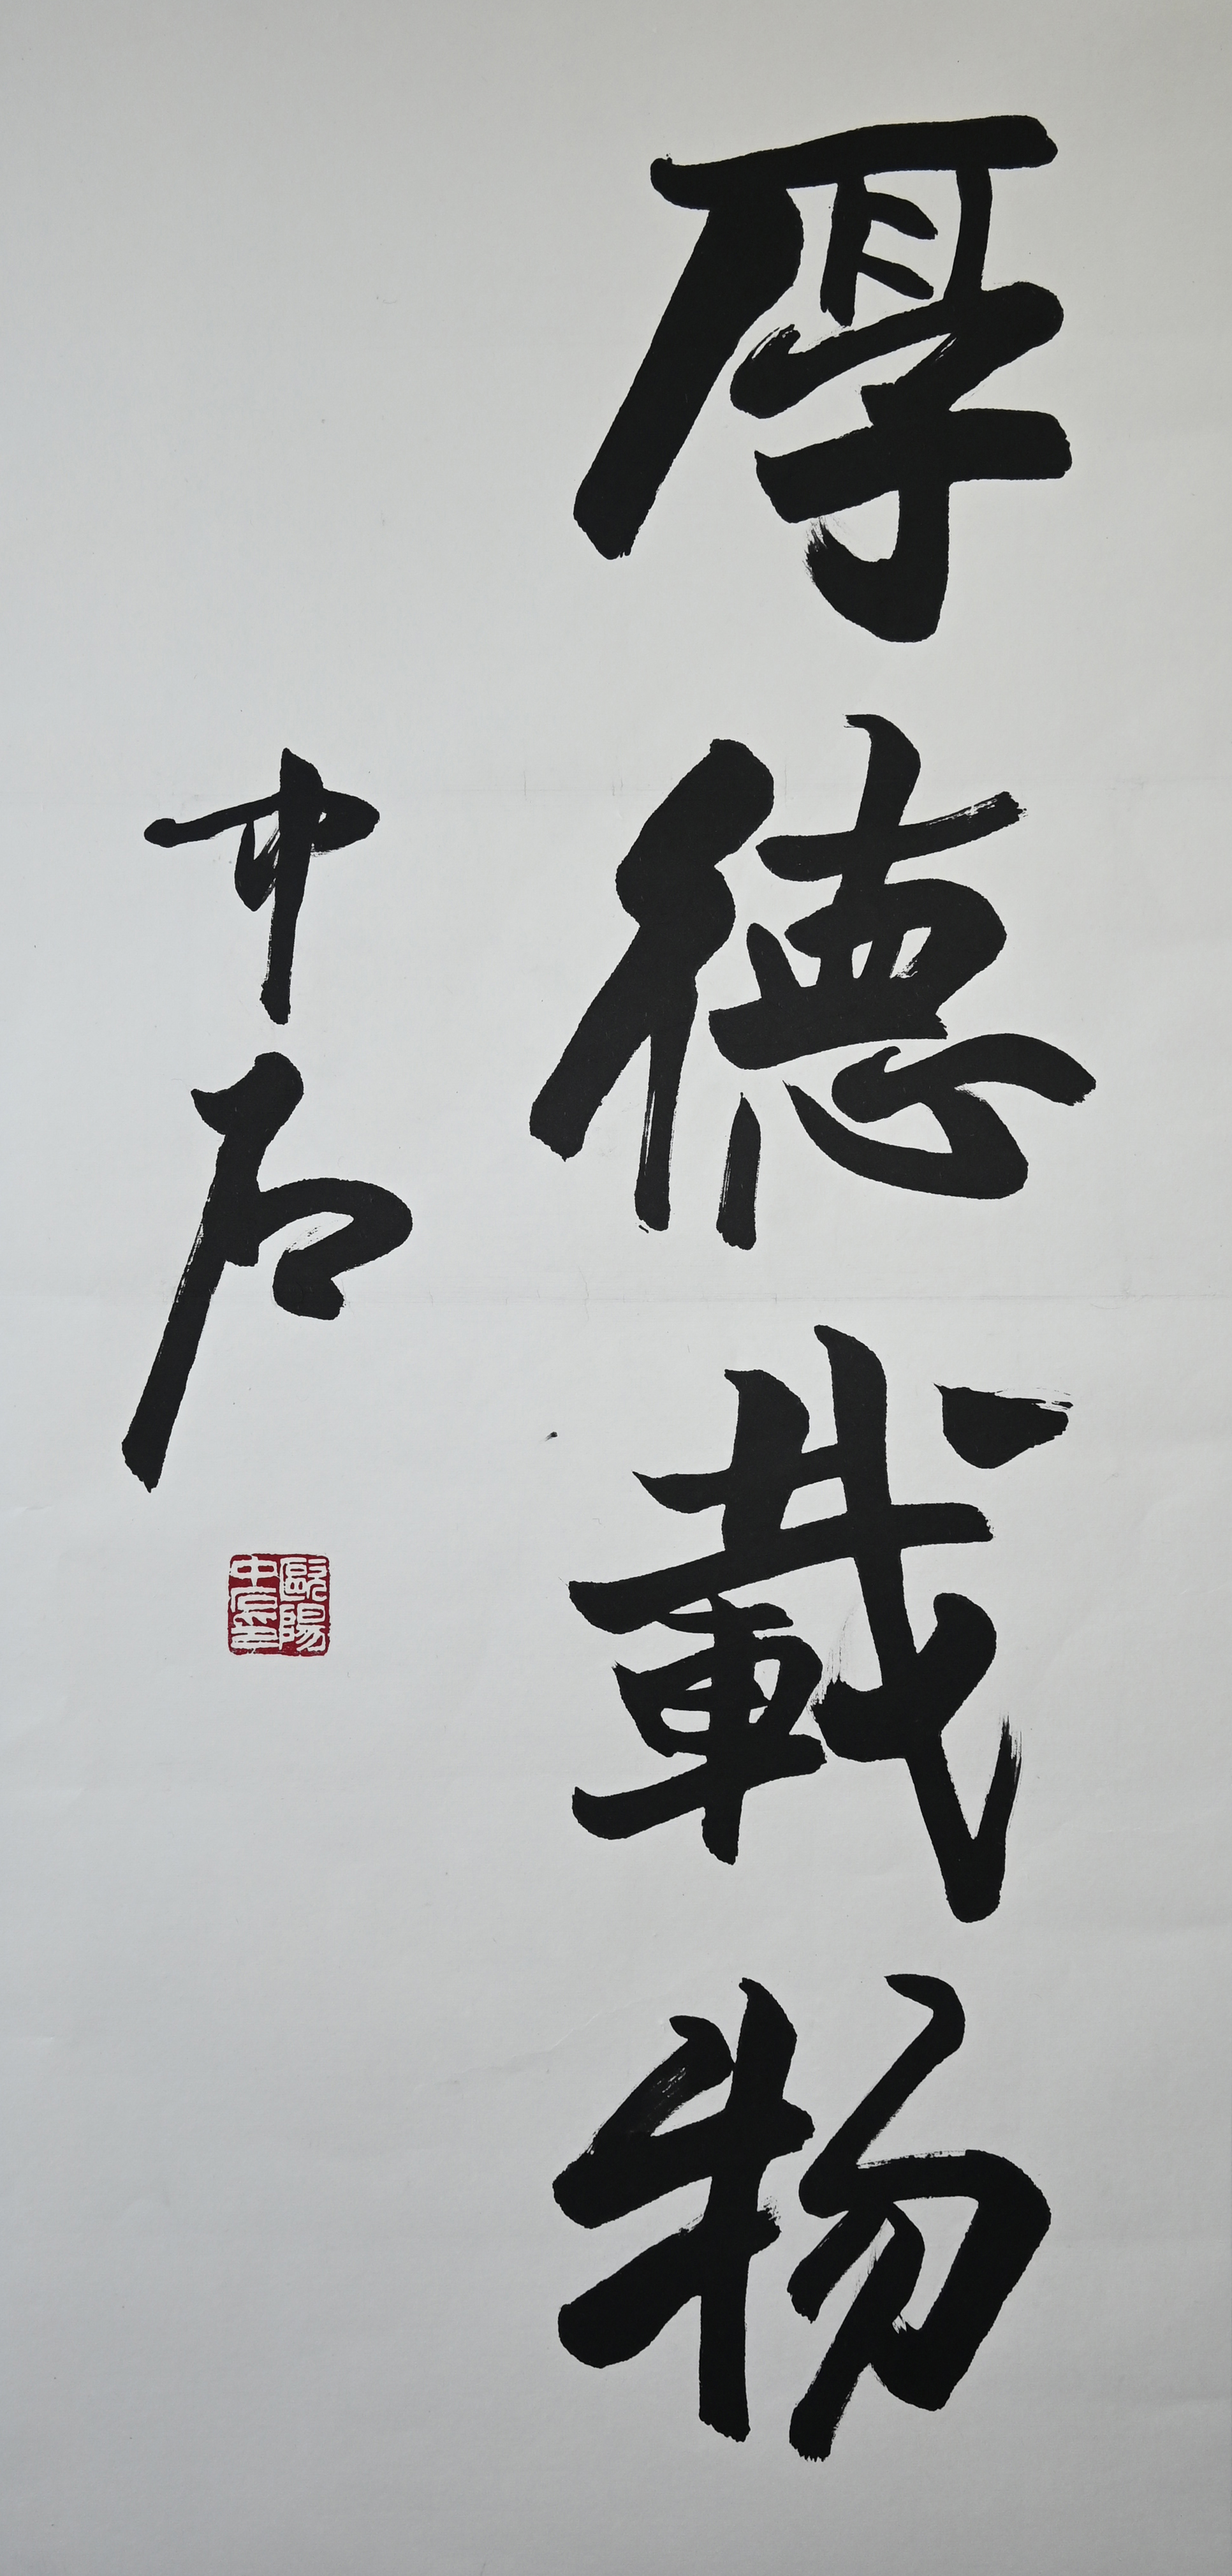 厚德載物
中石
歐陽
中石